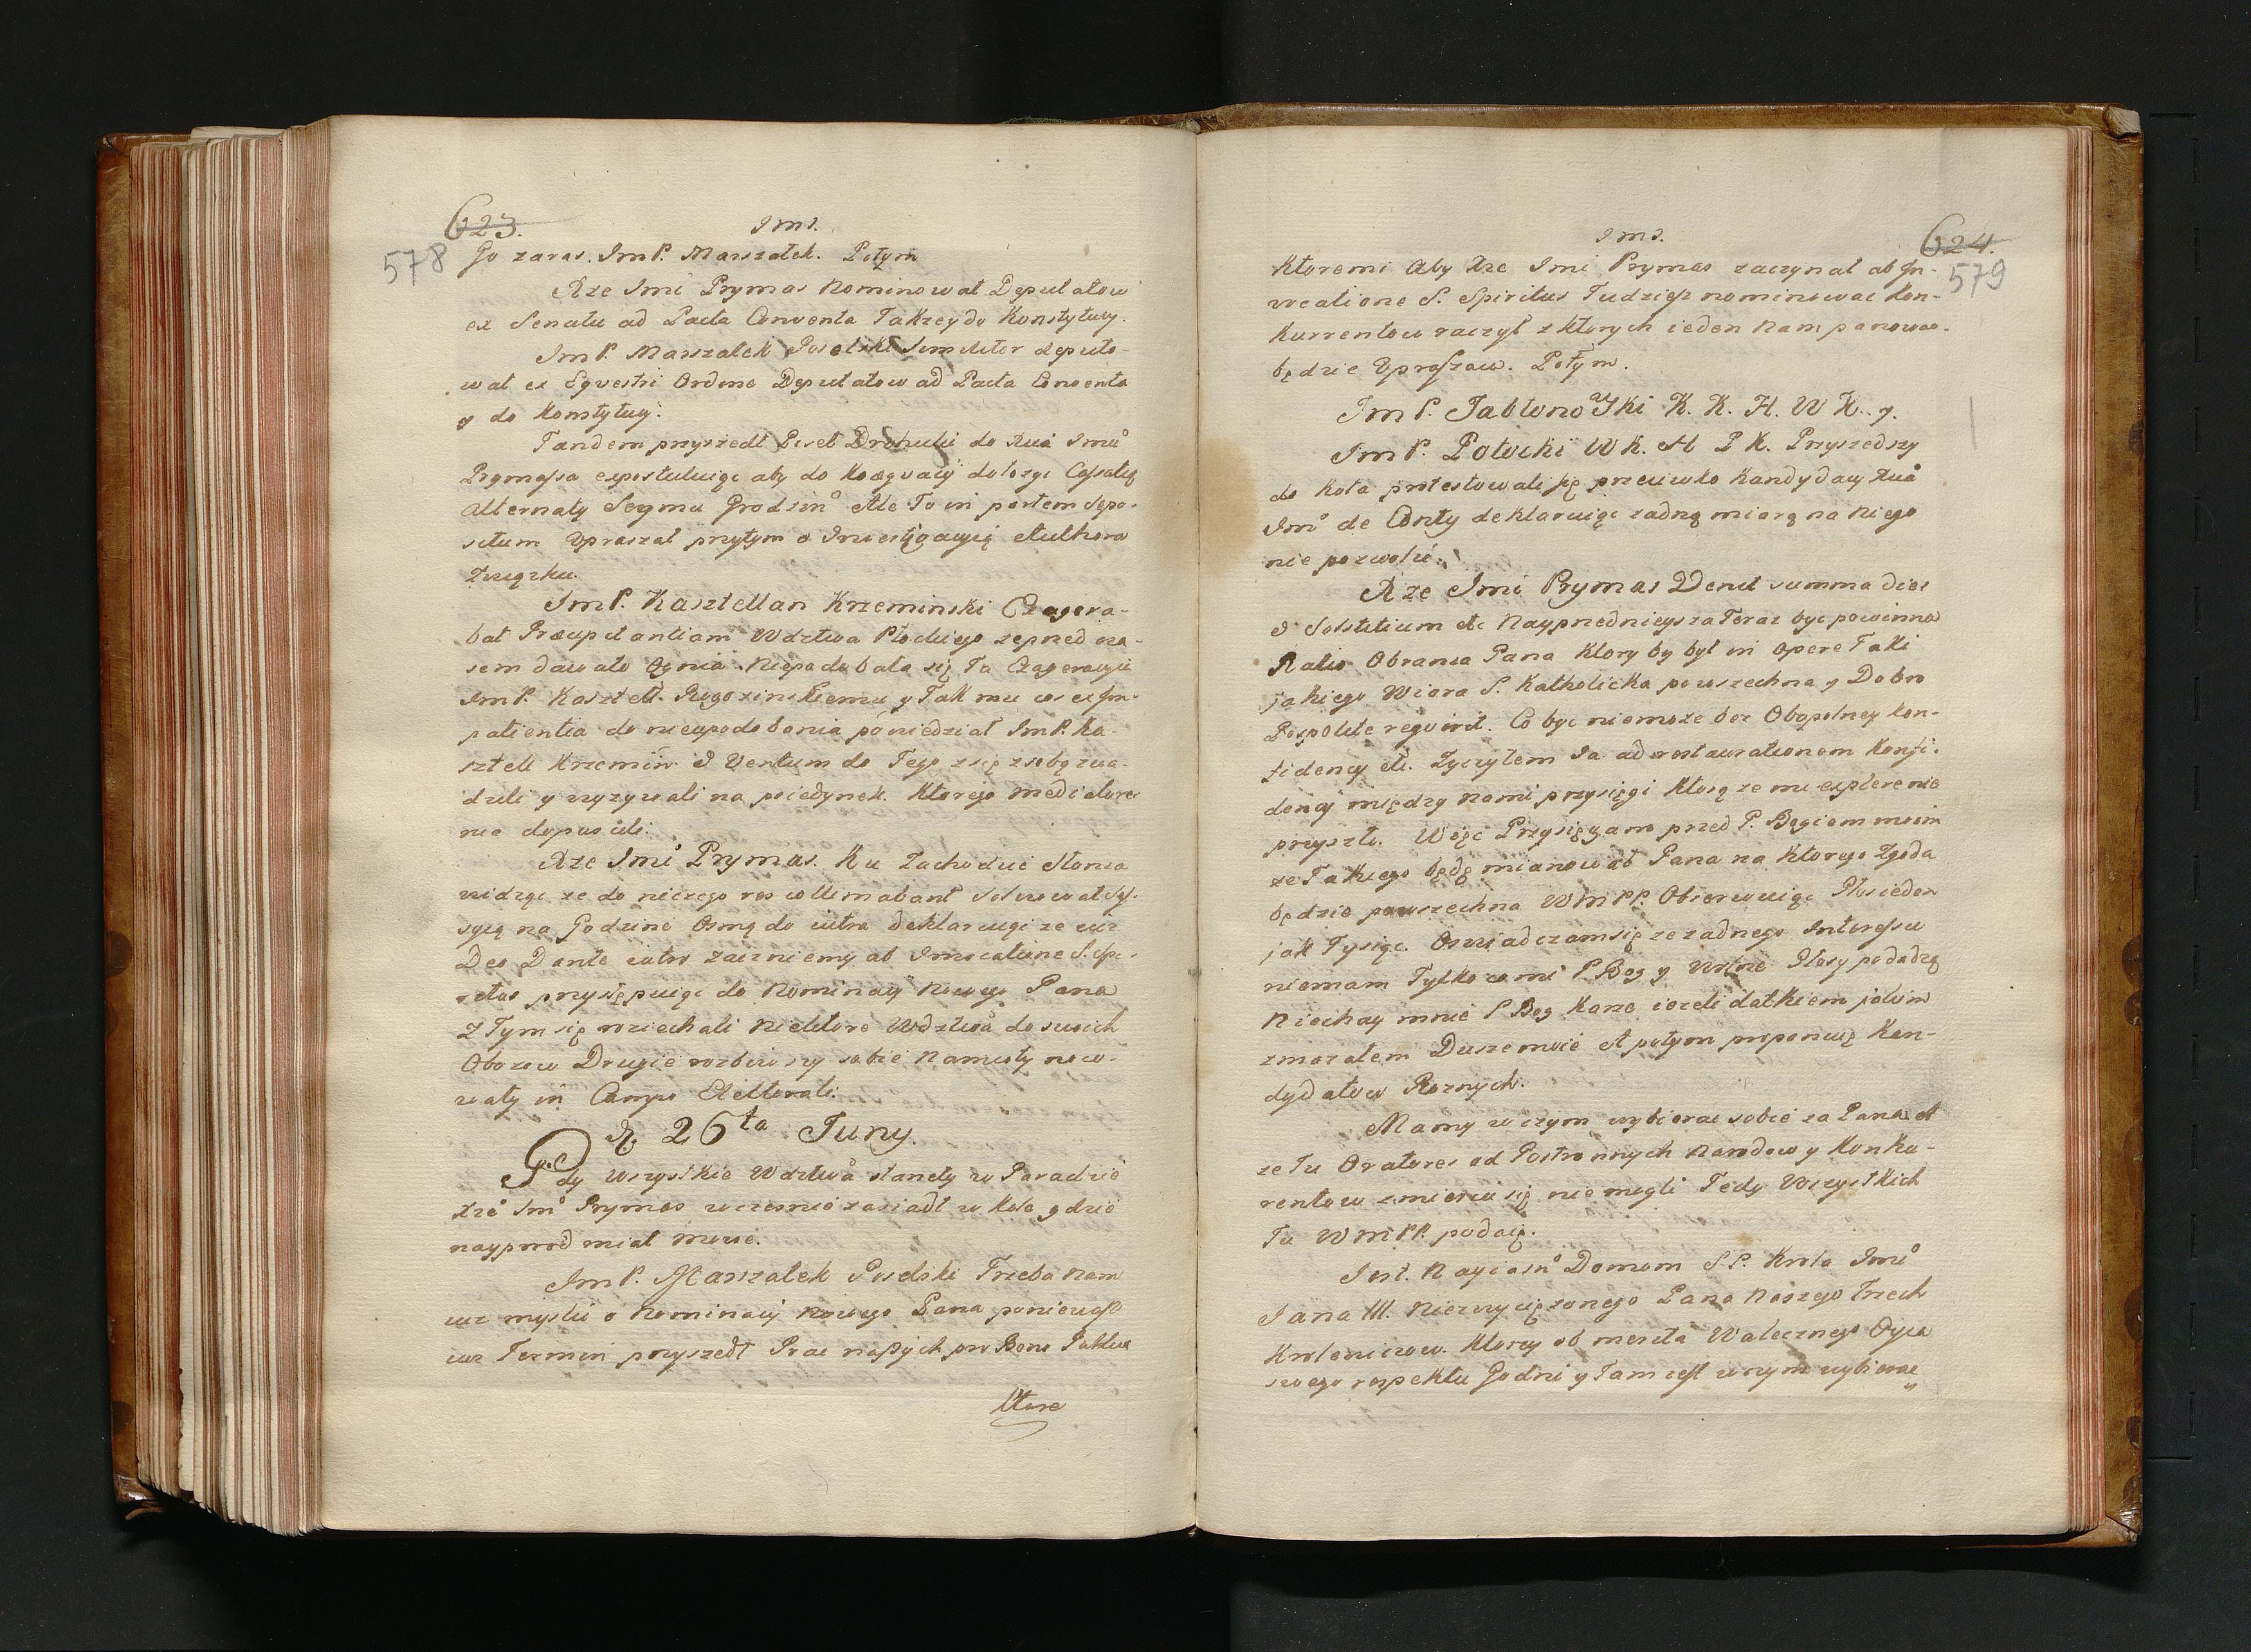 623.
578
Jms.
Go zaras. JmP. Marszałek. Potym
Xże Jmć Prymas Nominował Deputatow
ex Senatu ad Pacta Conventa Takze y do Konstytucy.
JmP. Marszałek Poselski Similiter deputo-
wał ex Eqvestri Ordine Deputatow ad Pacta Conventa
y do Konstytucy.
Tandem przyszedł Poseł Drohicki do Xcia Jmci
Prymassa expostuluiąc aby do Koæqvacÿ dołozyc Cassatię
Alternaty Seymu Grodzin Ale To in partem sepo-
situm Upraszał przytym o Jnvestigacyię Authora
Związku.
JmP. Kasztellan Krzeminski Exagera-
bat Præcipitantiam Wdztwa Płockiego ze przed cza-
sem dawało Ognia. Niepodobała się Ta Exageracyia
JmP. Kasztell. Rogozinskiemu y Tak mu cos ex Jm-
patientia do nieupodobania powiedział JmP. Ka-
sztell Krzemin: & Ventum do Tego z się z sobą zwa-
dzili y wyzywali na poiedynek. Ktorego mediatores
nie dopuscili.
Xże Jmć Prymas. Ku Zachodzie Słonca
widząc ze do niczego res collimabant Solwował Ses-
syią na Godzinę Osmą do iutra deklaruiąc ze iuz
Deo Dante iutro zaczniemy ab Jnvocatione S. Spi-
ritus przystępuiąc do Nominacÿ Nowego Pana
Z Tym się roziechali Niektore Wdztwa do swoich
Obozow Drugie rozbiwszy sobie Namioty noco-
wały in Campo Elektorali.
D. 26ta Juny.
Gdy Wszystkie Wdztwa stanely w Paradzie
Xże Jmć Prymas wczesnie zasiadł w Kole gdzie
nayprzod miał mowę.
JmP. Marszałek Poselski Trzeba Nam
iuz myslic o Nominacÿ Nowego Pana poniewasz
iuz Termin przyszedł Prac naszych pro Bono Publico
Ktore
Jms.
624.
579
Ktoremi Aby Xze Jmć Prymas zaczynał ab Jn-
vocatione S. Spiritus Tudziesz nominowac Kon-
kurrentow raczył z ktorych ieden nam panowac
będzie Upraszam. Potym.
JmP. Jabłonowski K. K. H. W K. y.
JmP. Potocki WK. H P K. Przyszedszy
do Koła protestowali się przeciwko Kandydacy Xcia
Jmć de Conty deklaruiąc zadną miarą na Niego
nie pozwolić.
Xze Jmć Prymas Venit summa dies
& Solstitium etc Nayprzednieysza Teraz byc powinna
Ratio Obrania Pana Ktory by był in opere Taki
jakiego Wiara S. Katholicka powszechna y Dobro
Pospolite reqvirit. Co byc niemoze bez Obopolney kon-
fidency etc. Zyczyłem Ja ad restaurationem Konfi-
dency między nami przysięgi Ktorą ze mi explere nie
przyszło. Więc Przysięgam przed P. Bogiem moim
ze Takiego będę mianował Pana na Ktorego Zgoda
będzie powszechna WMPP. Obserwuiąc Głos ieden
jak Tysiąc. Oswiadczam się ze zadnego Jnteressu
niemam Tylko co mi P Bog y Wolne Głosy podadzą
Niechay mnie P Bog Karze iezeli datkiem jakim
zmazałem Dusze moię A potym proponuię Kan-
dydatow Roznych.
Mamy w czym wybierac sobie za Pana A
ze Tu Oratores od Postronnych Narodow y Konku-
rentow zmiescic się nie mogli Tedy Wszystkich
Tu WMPP. podaię.
Jest. Nayiasn Domem S.P. Krola Jmć
Jana III. Niezwyciężonego Pana Naszego Trzech
Krolewicow. Ktorzy ob merita Walecznego Oyca
swego respektu Godni y Tam iest w czym wybierac